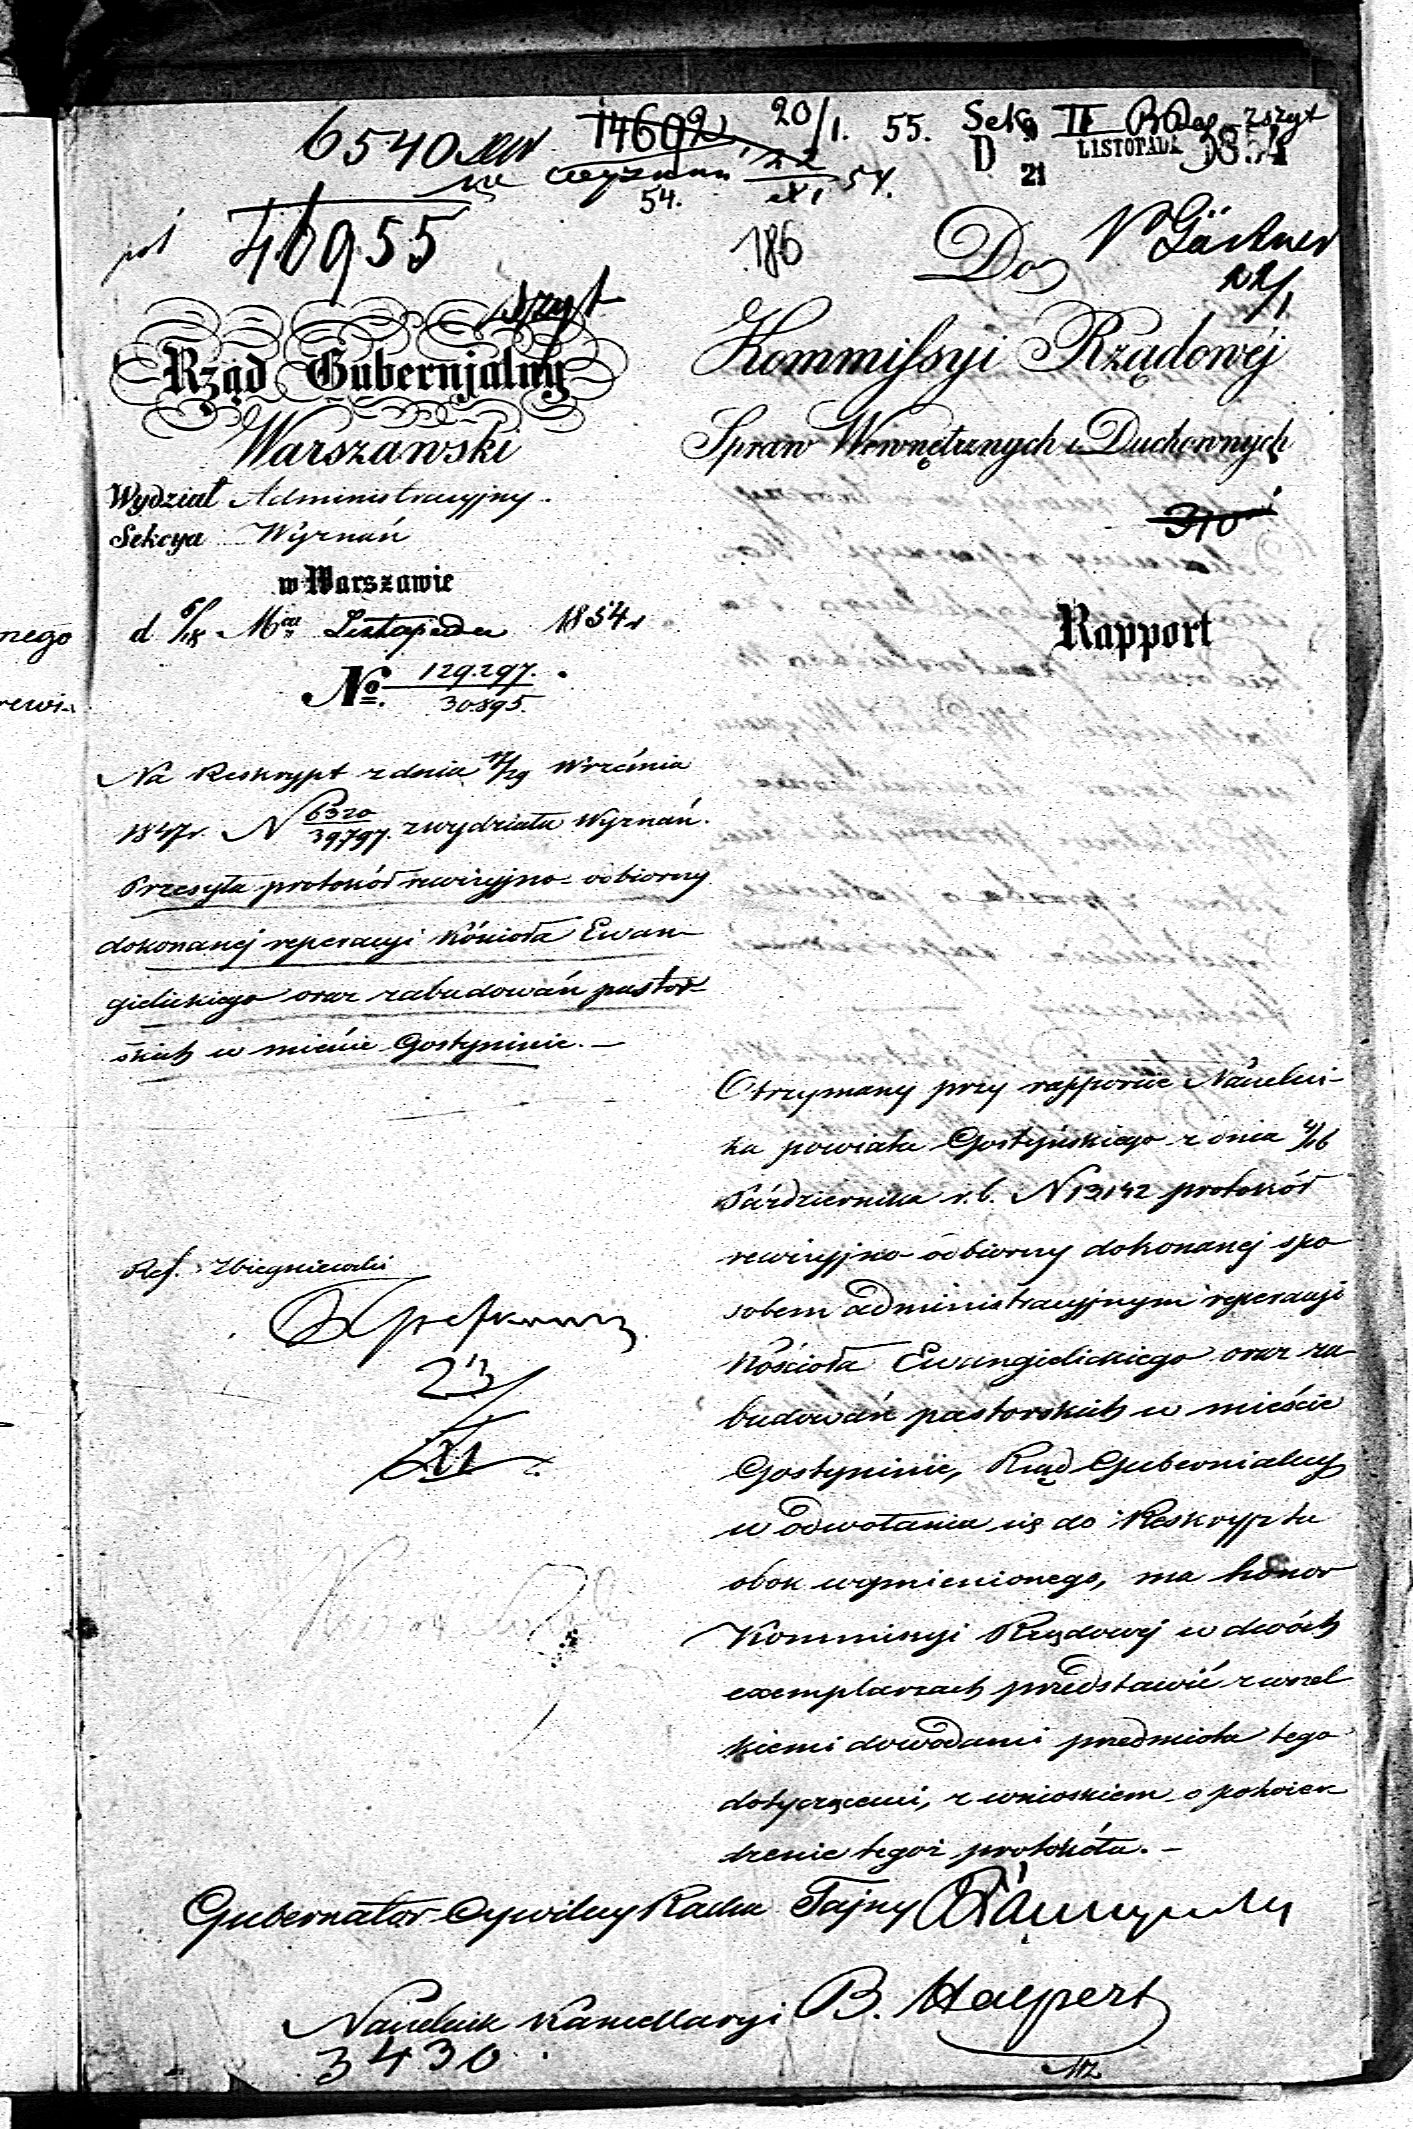 6540
14602
20/1. 55.
Sek II
zszyt
D 21 LISTOPADA 1854
54.
22/XI 54.
46955
186
Do
22/1
Rząd Gubernjalny
Warszawski
Wydział Administracyjny.
Sekcya Wyznań
w Warszawie
d 6/18 Mca Listopada 1854 r
No. 129.297. / 30895.
Na Reskrypt z dnia 17/29 Września
1847 r. N 6320/39797. z wydziału Wyznań.
Przesyła protokół rewizyjno-odbiorczy
dokonanej reperacyi Kościoła Ewan-
gielickiego oraz zabudowań pastor-
skich w mieście Gostyninie. —
Ref. Zbiegniewski
23
XI
Kommissyi Rządowéj
Spraw Wewnętrznych i Duchownych
310
Rapport
Otrzymany przy rapporcie Naczelni-
ka powiatu Gostyńskiego z dnia 4/16
Października r. b. N 13142 protokół
rewizyjno-odbiorczy dokonanej spo
sobem administracyjnym reperacyi
Kościoła Ewangielickiego oraz za-
budowań pastorskich w mieście
Gostyninie, Rząd Gubernialny
w odwołaniu się do Reskryptu
obok wymienionego, ma honor
Kommissyi Rządowej w dwóch
exemplarzach przedstawić z wszel
kiemi dowodami przedmiotu tego
dotyczącemi, z wnioskiem o potwier
dzenie tegoż protokółu. —
Gubernator Cywilny Radca Tajny
Naczelnik Kancellaryi B. Halpert
3430